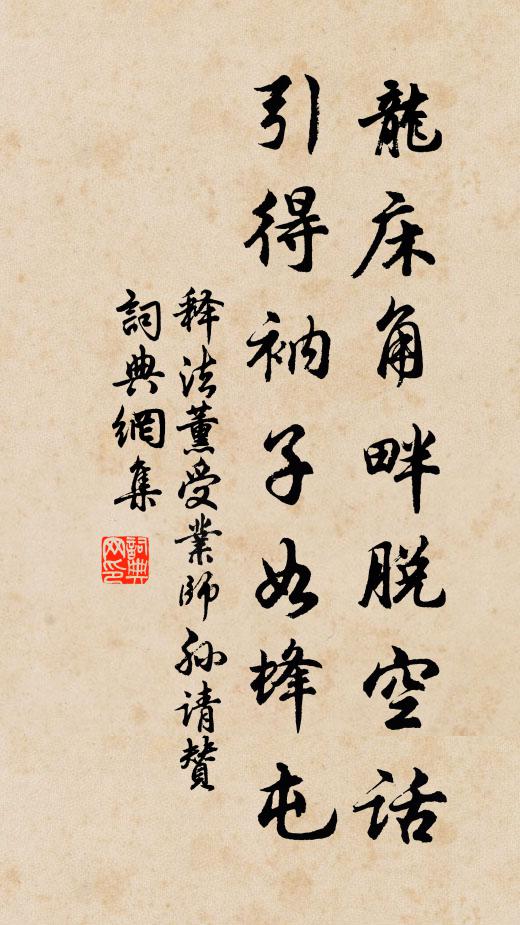 龍床角畔脱空話
引得衲子如蜂屯
释法薰受業師孙请赞
詞典網集
詞典網印